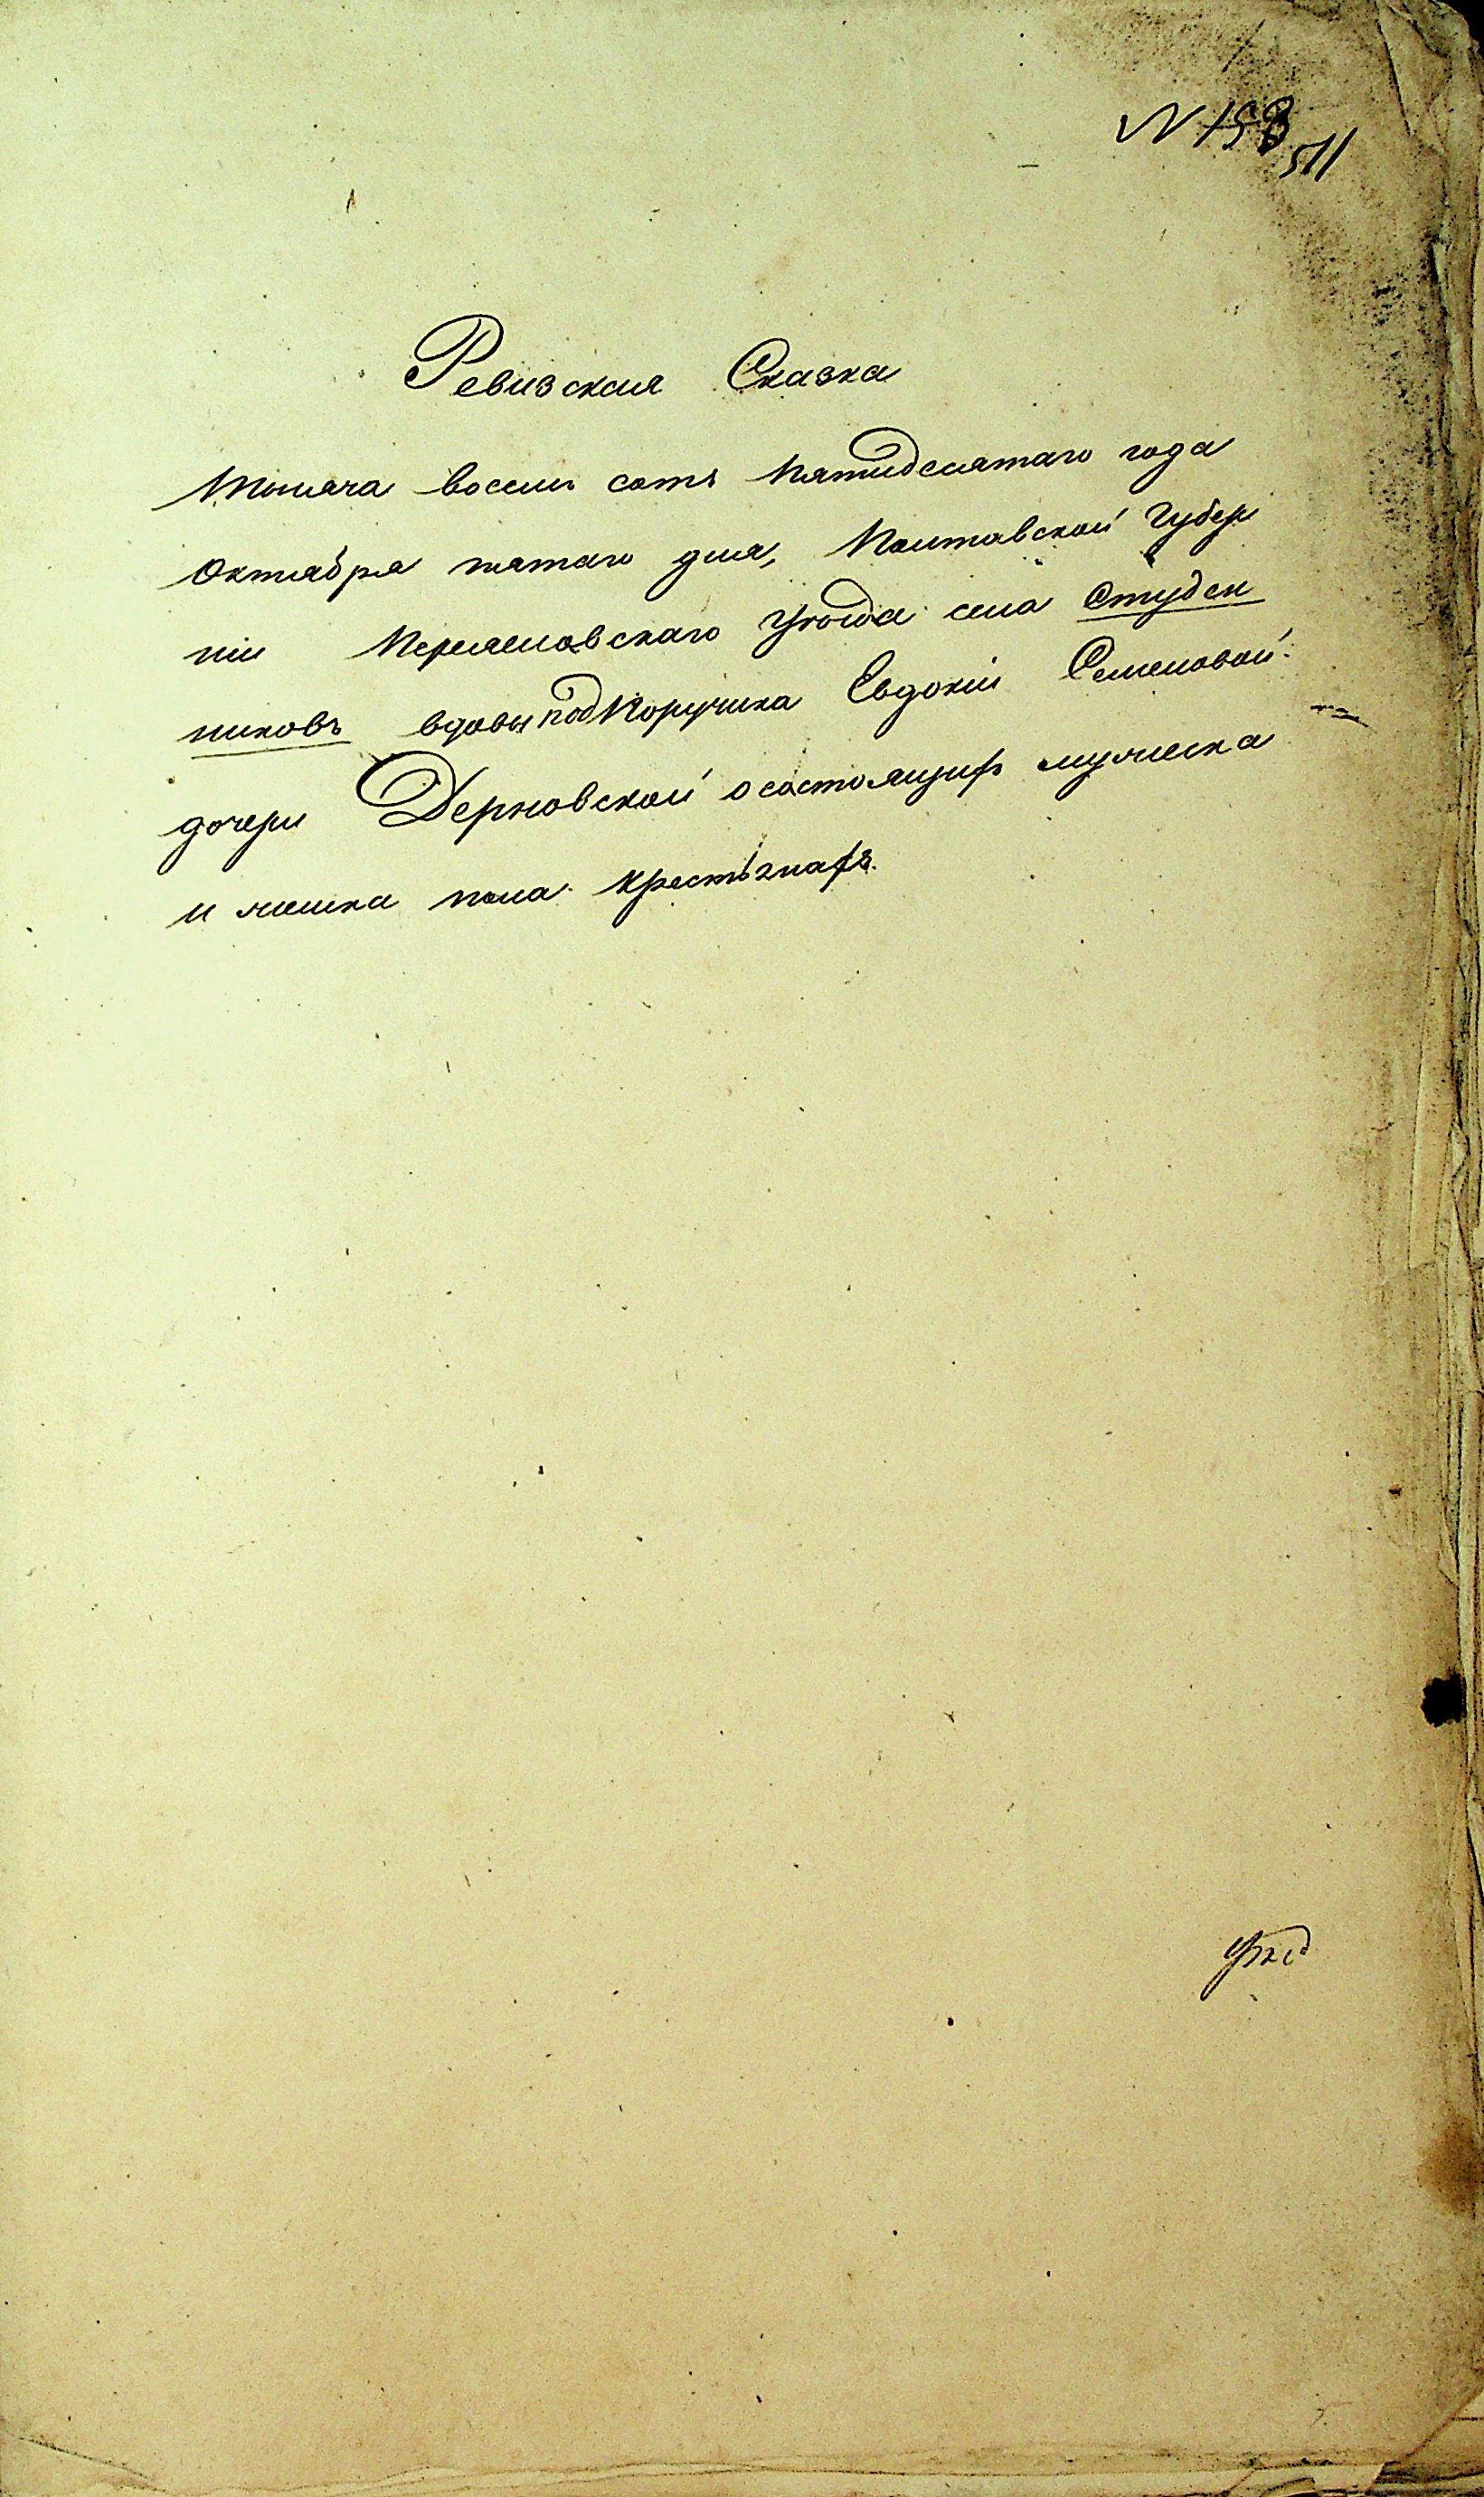 N 158
511
Ревизская Сказка
Тысяча восем сотъ пятидесятаго года
Октября пятаго дня, Полтавской Губер
ніи Переяславскаго уѣзда села Студен
никовъ вдовы подпоручика Евдокіи Семеновой
дочери Дерновской о состоящихъ мужеска
и женска пола крестьянахъ.